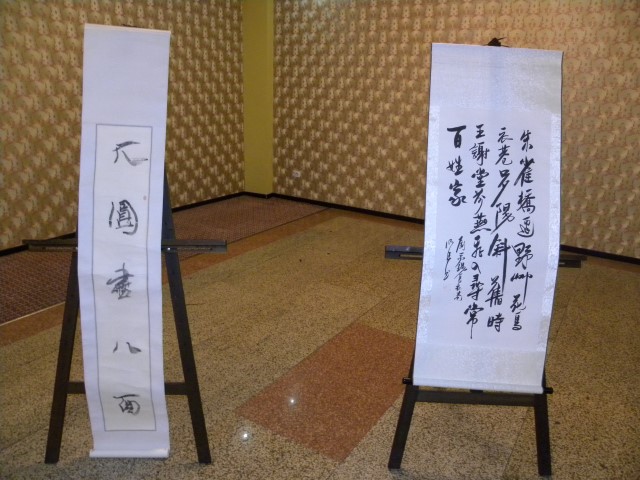 朱雀橋邊野艸花烏
衣巷口夕陽斜舊時
王謝堂前燕飛入尋常
百姓家
八面